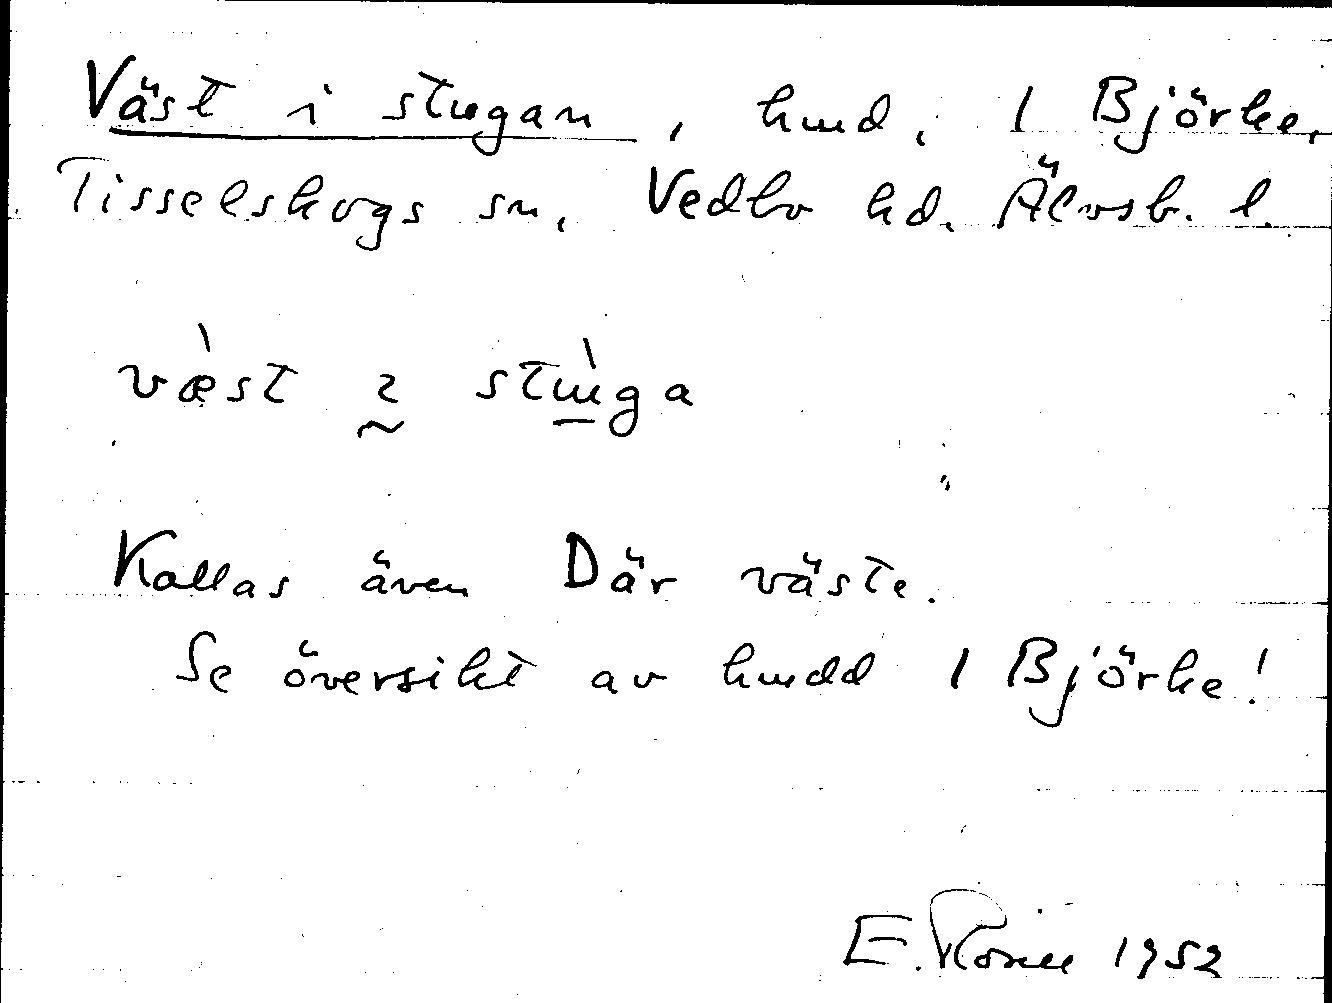 Väst i stugan, hmd, 1 Björke,
Tisselskogs sn, Vedbo hd. Älvsb. l.
væ̀st ꝛ stɯ̀ga
Kallas även Där väste.
Se översikt av hmdd 1 Björke!
E. Rosén 1952